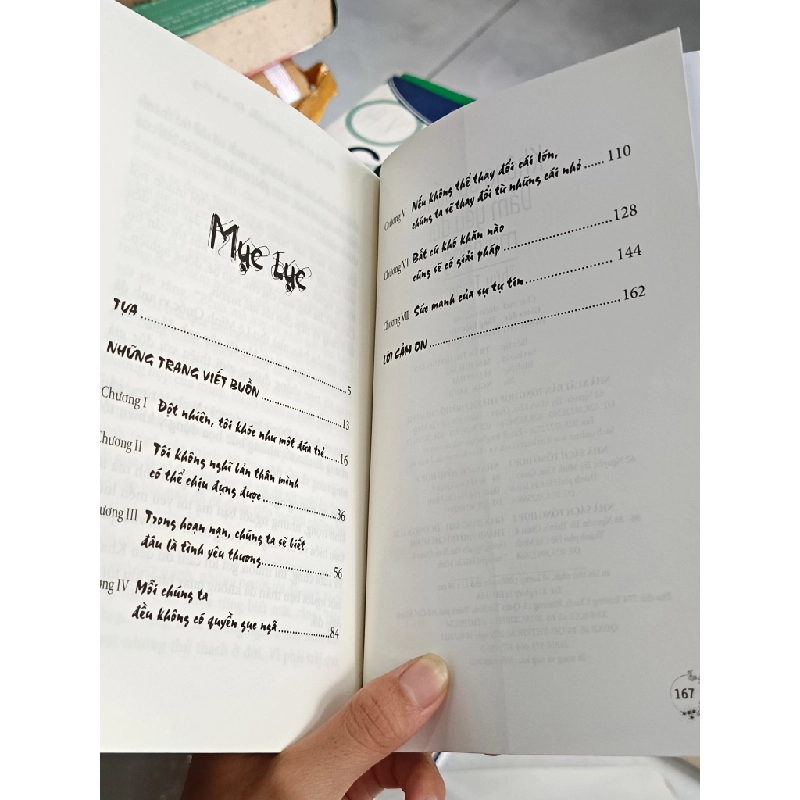 Mục Lục
TỰA ..... 5
NHỮNG TRANG VIẾT BUỒN ..... 13
Chương I Đột nhiên, tôi khóc như một đứa trẻ ..... 16
Chương II Tôi không nghĩ bản thân mình
có thể chịu đựng được ..... 36
ương III Trong hoạn nạn, chúng ta sẽ biết
đâu là tình yêu thương ..... 56
ng IV Mỗi chúng ta
đều không có quyền gục ngã ..... 84
Chương V Nếu không thể thay đổi cái lớn,
chúng ta sẽ thay đổi từ những cái nhỏ ..... 110
Chương VI Bất cứ khó khăn nào
cũng sẽ có giải pháp ..... 128
Chương VII Sức mạnh của sự tự tôn ..... 144
LỜI CẢM ƠN ..... 162
167